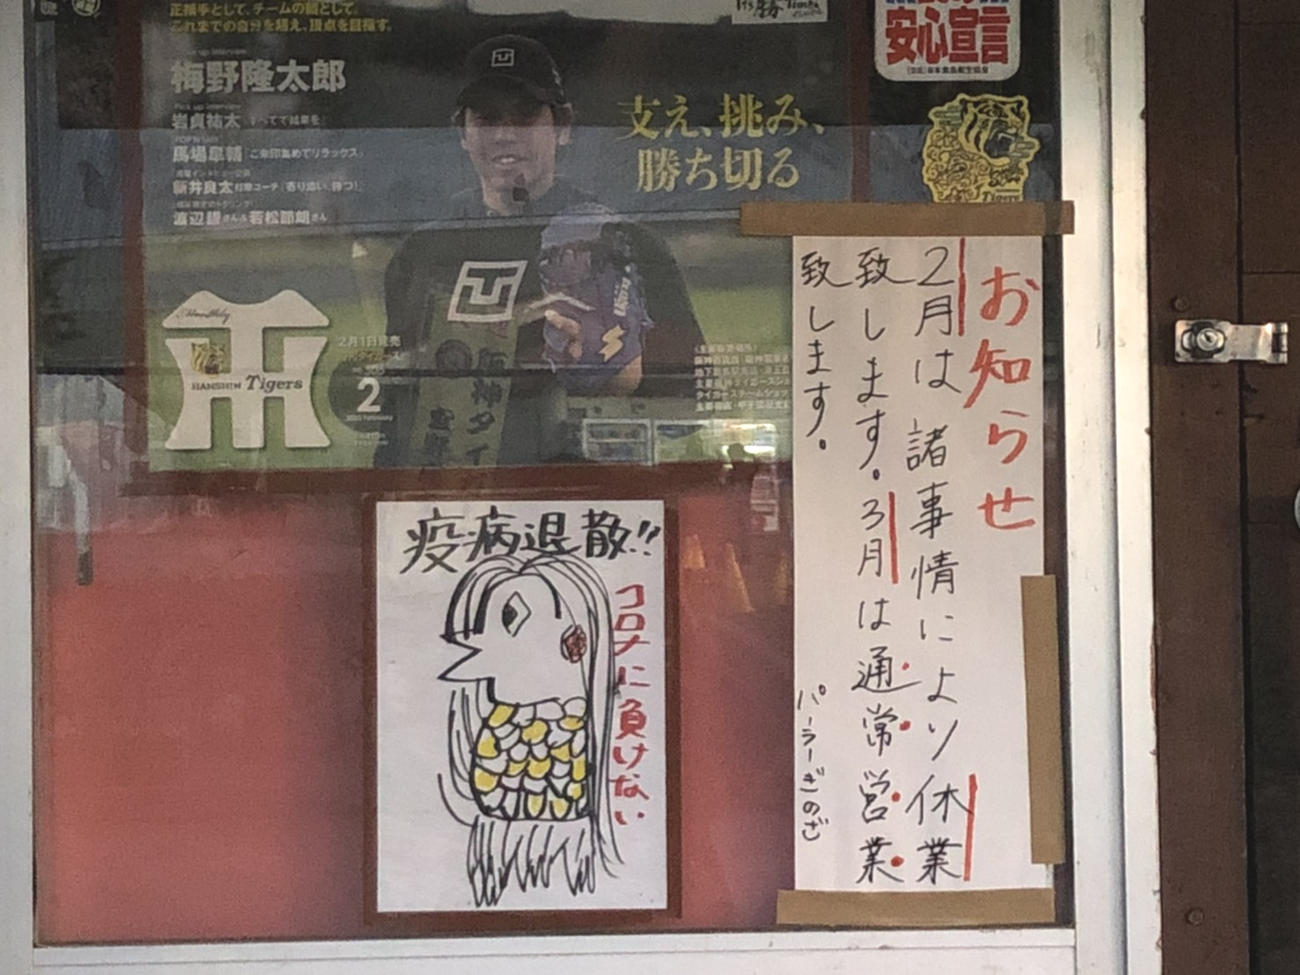 正捕手として、チームの顔として。
これまでの自分を超え、頂点を目指す。
梅野隆太郎
Pick up interview
岩貞祐太「すべて結果を」
馬場皐輔「ご朱印集めてリラックス」
新井良太
渡辺諒さん&若松節朗さん
支え、挑み、
勝ち切る
Monthly
HANSHIN Tigers
2月1日発売
2
安心宣言
Tigers
お知らせ
2月は諸事情により休業
致します。3月は通常営業
致します。
パーラーぎのざ
疫病退散!!
コロナに負けない